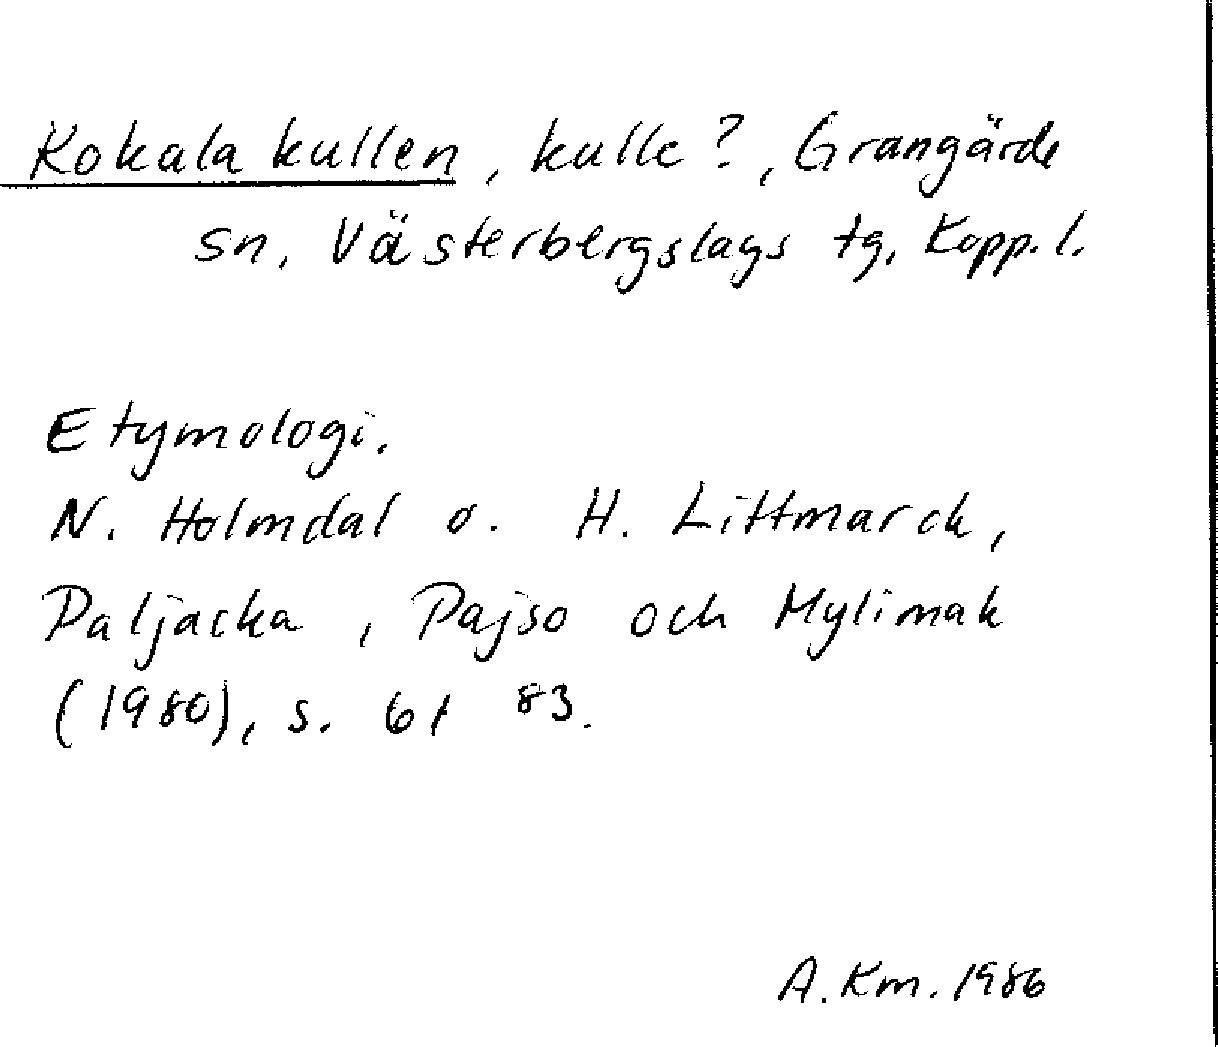 Kokala kullen, kulle?, Grangärde
sn, Västerbergslags tg, Kopp. l.
Etymologi.
N. Holmdal o. H. Littmarck,
Paljacka, Pajso och Mylimak
(1980), s. 61 83.
A. Km. 1986